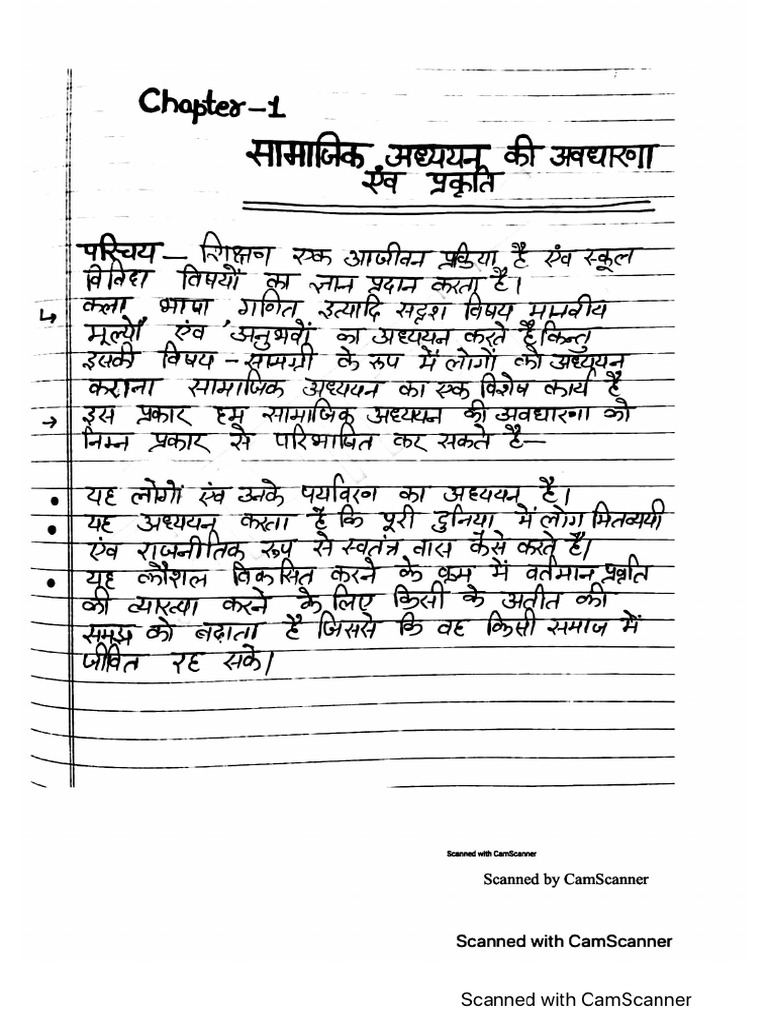 Chapter-1
सामाजिक अध्ययन की अवधारणा
एंव प्रकृति
परिचय – शिक्षण एक आजीवन प्रक्रिया है एंव स्कूल
विविध विषयों का ज्ञान प्रदान करता है।
↳ कला भाषा, गणित इत्यादि सदृश विषय मानवीय
मूल्यों एंव अनुभवों का अध्ययन करते है, किन्तु
इसकी विषय - सामग्री के रूप में लोगों को अध्ययन
कराना सामाजिक अध्ययन का एक विशेष कार्य है
→ इस प्रकार हम सामाजिक अध्ययन की अवधारणा को
निम्न प्रकार से परिभाषित कर सकते है–
• यह लोगों एंव उनके पर्यावरण का अध्ययन है।
• यह अध्ययन करता है कि पूरी दुनिया में लोग मितव्ययी
एंव राजनीतिक रूप से स्वतंत्र वास कैसे करते है।
• यह कौशल विकसित करने के क्रम में वर्तमान प्रवृति
की व्याख्या करने के लिए किसी के अतीत की
समझ को बढ़ाता है जिससे कि वह किसी समाज में
जीवित रह सके।
Scanned with CamScanner
Scanned by CamScanner
Scanned with CamScanner
Scanned with CamScanner